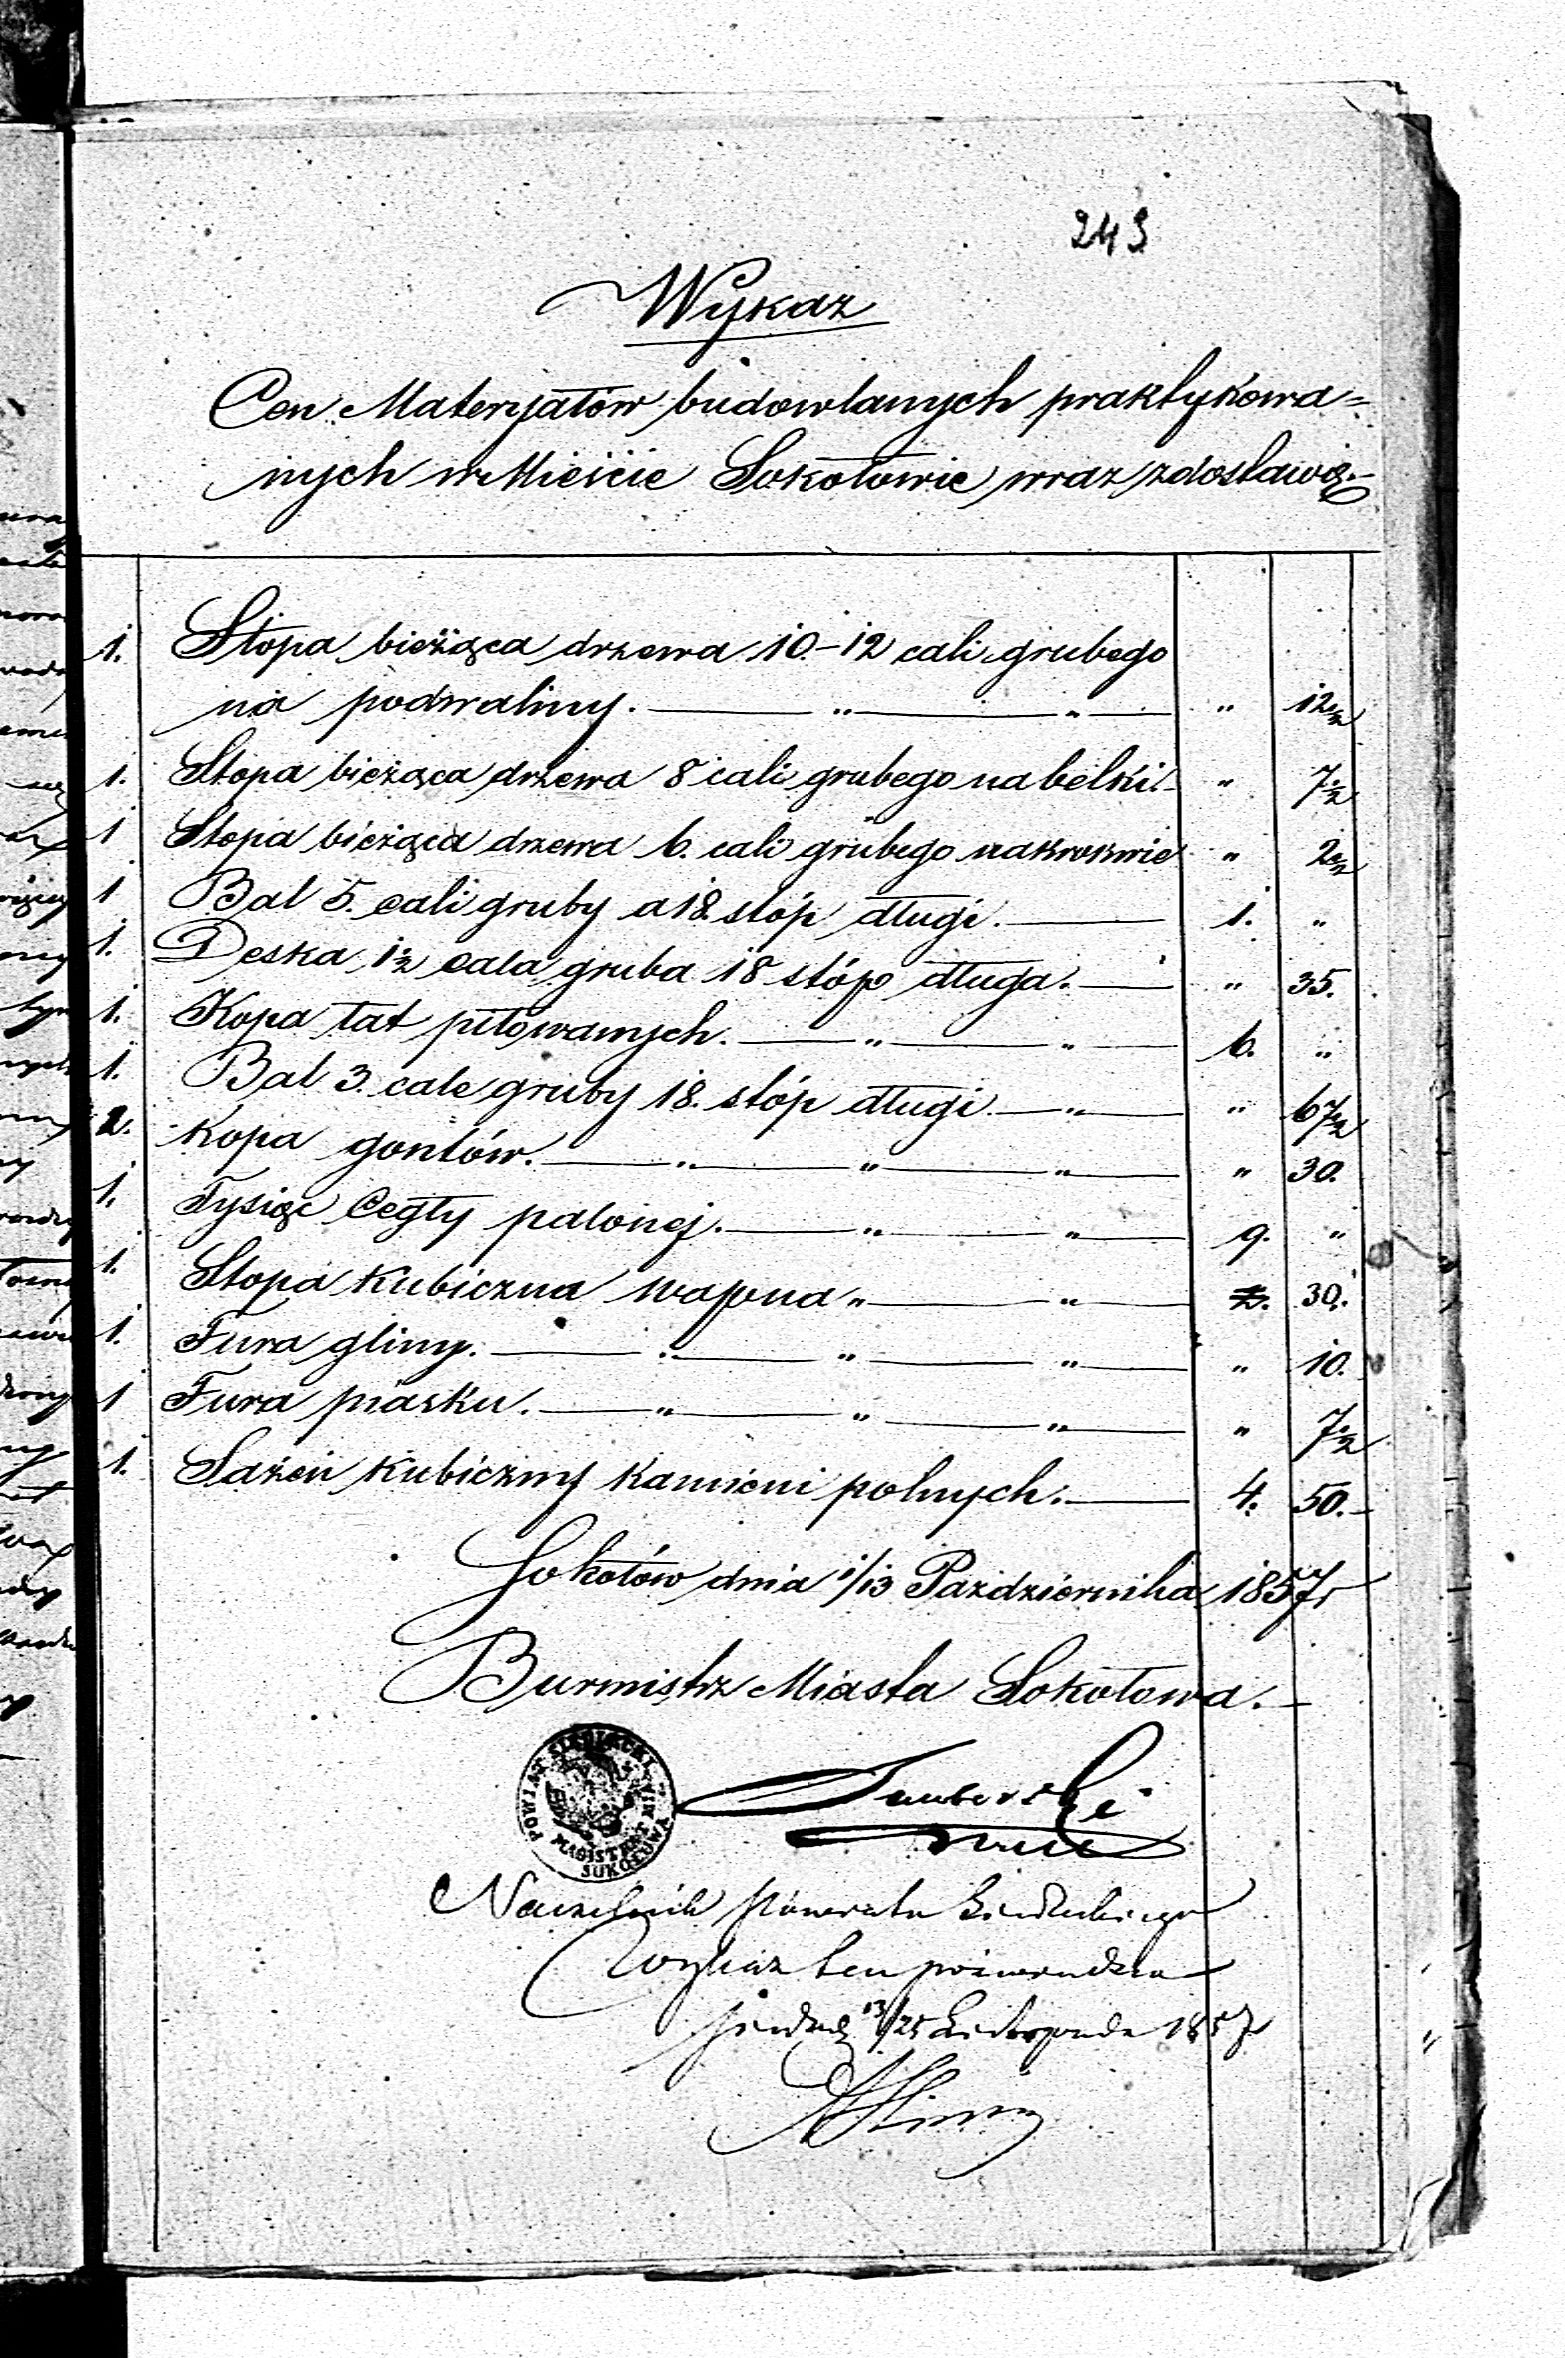 243
Wykaz
Cen Materyałów budowlanych praktykowa=
nych w Mieście Sokołowie wraz z dostawą.-
1. Stopa bieżąca drzewa 10.-12 cali grubego
na podwaliny. — " — " — " 12½
1. Stopa bieżąca drzewa 8 cali grubego na belki.- " 7½
1 Stopa bieżąca drzewa 6. cali grubego na krokwie " 2½
1 Bal 5. cali gruby a 18 stóp długi. — 1. "
1. Deska 1½ cala gruba 18 stóp długa. — " 35.
1. Kopa łat piłowanych. — " — " — 6. "
1. Bal 3. cale gruby 18. stóp długi. — " — " 67½
2. Kopa gontów. — " — " — " — " 30.
1. Tysiąc Cegły palonej. — " — " — 9. "
1. Stopa kubiczna wapna " — " — 30.
1. Fura gliny. — " — " — " — " 10.
1 Fura piasku. — " — " — " — " 7½
1. Sażeń kubiczny kamieni polnych. — 4. 50.-
Sokołów dnia 1/13 Października 1857 r
Burmistrz Miasta Sokołowa.-
POWIAT SIEDLECKI
MAGISTRAT MIASTA
SOKOŁOWA
Naczelnik Powiatu Siedleckiego
Wykaz ten poświadcza
Siedlce 13/25 Listopada 1857